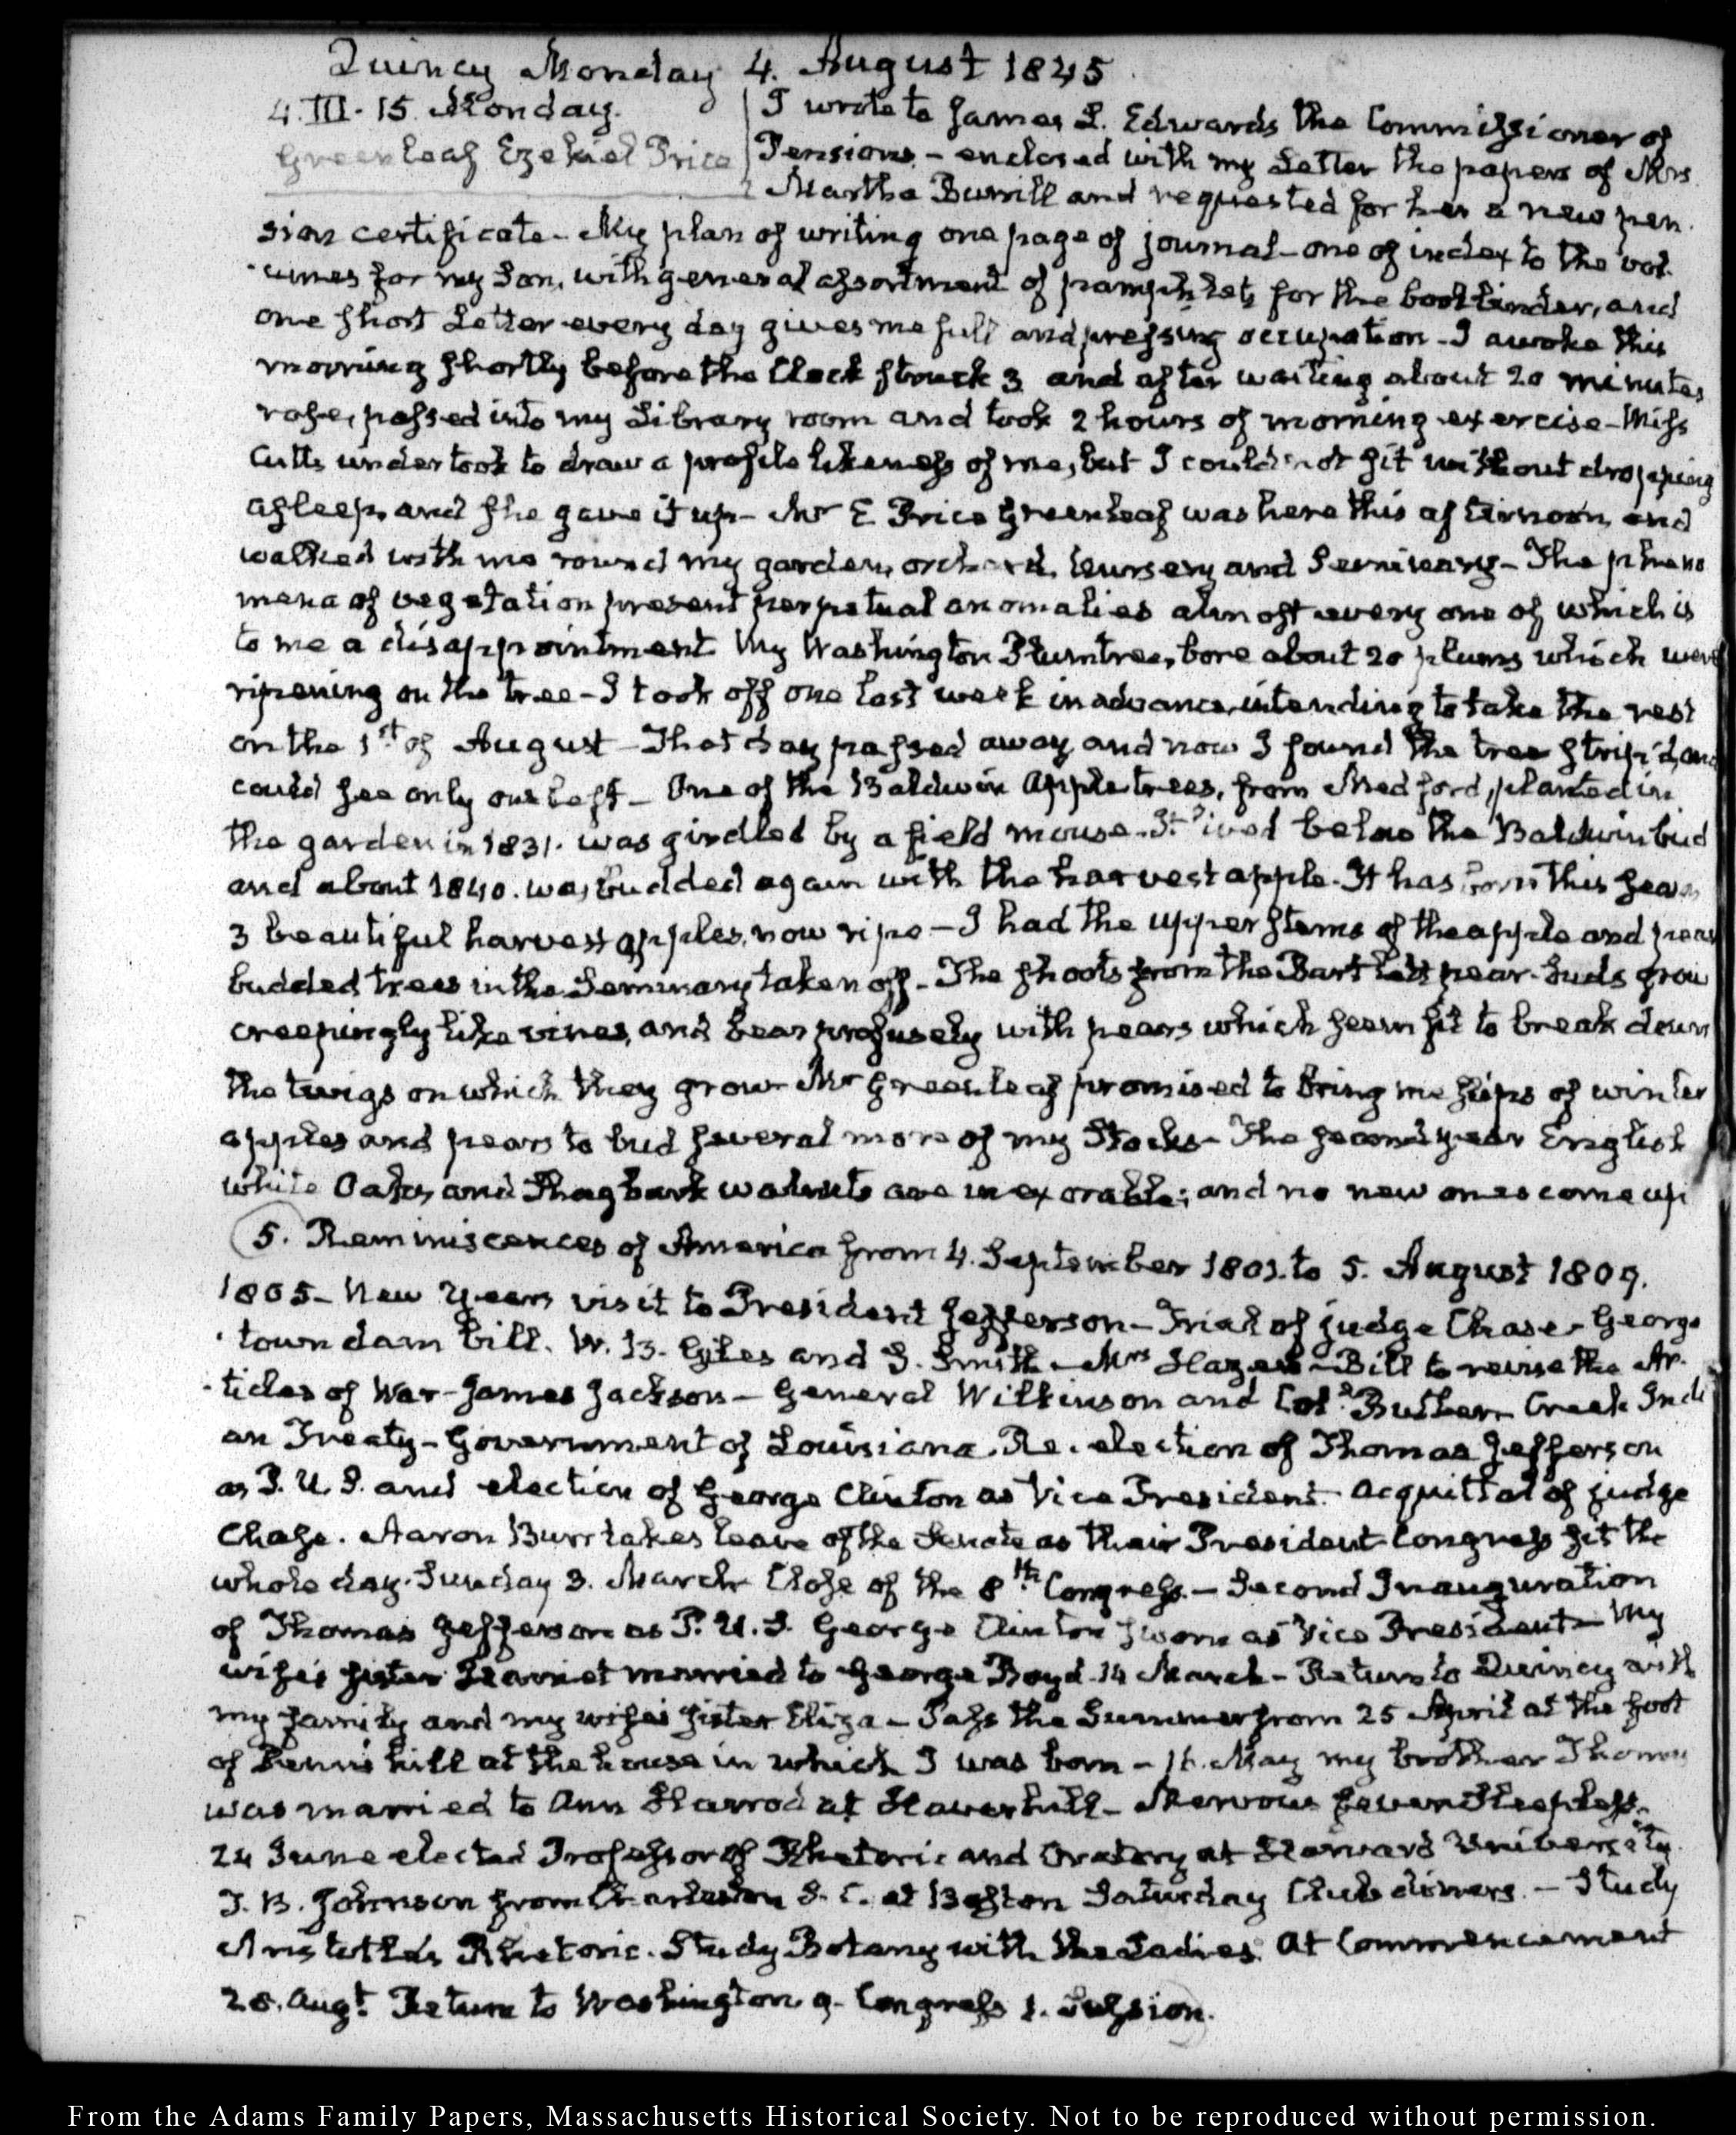 Quincy Monday 4. August 1845
4. III. 15. Monday.
Greenleaf Ezekiel Price
I wrote to James L. Edwards the Commissioner of
Pensions — enclosed with my Letter the papers of Mrs
Martha Burrill and requested for her a new pen
sion certificate — My plan of writing one page of journal — one of index to the vol-
umes for my Son, with general assortment of pamphlets for the bookbinder, and
one short Letter every day gives me full and pressing occupation — I awoke this
morning shortly before the Clock struck 3 and after waiting about 20 minutes
rose, passed into my Library room and took 2 hours of morning exercise — Miss
Cutts undertook to draw a profile likeness of me, but I could not sit without dropping
asleep, and she gave it up — Mr E Price Greenleaf was here this afternoon, and
walked with me round my garden, orchard, nursery and Seminary — The pheno
mena of vegetation present perpetual anomalies almost every one of which is
to me a disappointment. My Washington Plumtree, bore about 20 plums which were
ripening on the tree — I took off one last week in advance, intending to take the rest
on the 1st of August — That day passed away, and now I found the tree strip'd, and
could see only one left — One of the Baldwin Apple trees, from Medford, planted in
the garden in 1831. was girdled by a field mouse. It lived below the Baldwin bud
and about 1840. was budded again with the harvest apple. It has born this year
3 beautiful harvest apples, now ripe — I had the upper stems of the apple and pear
budded trees in the Seminary taken off — The shoots from the Bartlett pear buds grow
creepingly like vines, and bear profusely with pears which seem fit to break down
the twigs on which they grow — Mr Greenleaf promised to bring me slips of winter
apples and pears to bud several more of my Stocks — The second year English
white Oaks, and Shagbark walnuts are inexorable; and no new ones come up
5. Reminiscences of America from 4. September 1801. to 5. August 1809.
1805 — New Years visit to President Jefferson — Trial of judge Chase — George
town dam bill. W. B. Giles and S. Smith — Mrs Hazen — Bill to revise the Ar-
ticles of War — James Jackson — General Wilkinson and Col. Butler — Creek Indi
an Treaty — Government of Louisiana. Re-election of Thomas Jefferson
as P. U. S. and election of George Clinton as Vice President. Acquittal of judge
Chase. Aaron Burr takes leave of the Senate as their President — Congress sit the
whole day. Sunday 3. March Close of the 8th Congress. — Second Inauguration
of Thomas Jefferson as P. U. S. George Clinton sworn as Vice President — My
wife's sister Harriet married to George Boyd. 14 March — Return to Quincy with
my family and my wife's sister Eliza — Pass the Summer from 25 April at the foot
of Penns hill at the house in which I was born — 16. May my brother Thomas
was married to Ann Harrod at Haverhill — Nervous fever and Sleepless.
24 June elected Professor of Rhetoric and Oratory at Harvard University.
J. B. Johnson from Charleston S. C. at Boston Saturday Club dinners. — Study
Aristotle's Rhetoric. Study Botany with the Ladies. At Commencement
28. Augt. Return to Washington 9. Congress 1. Session.
From the Adams Family Papers, Massachusetts Historical Society. Not to be reproduced without permission.